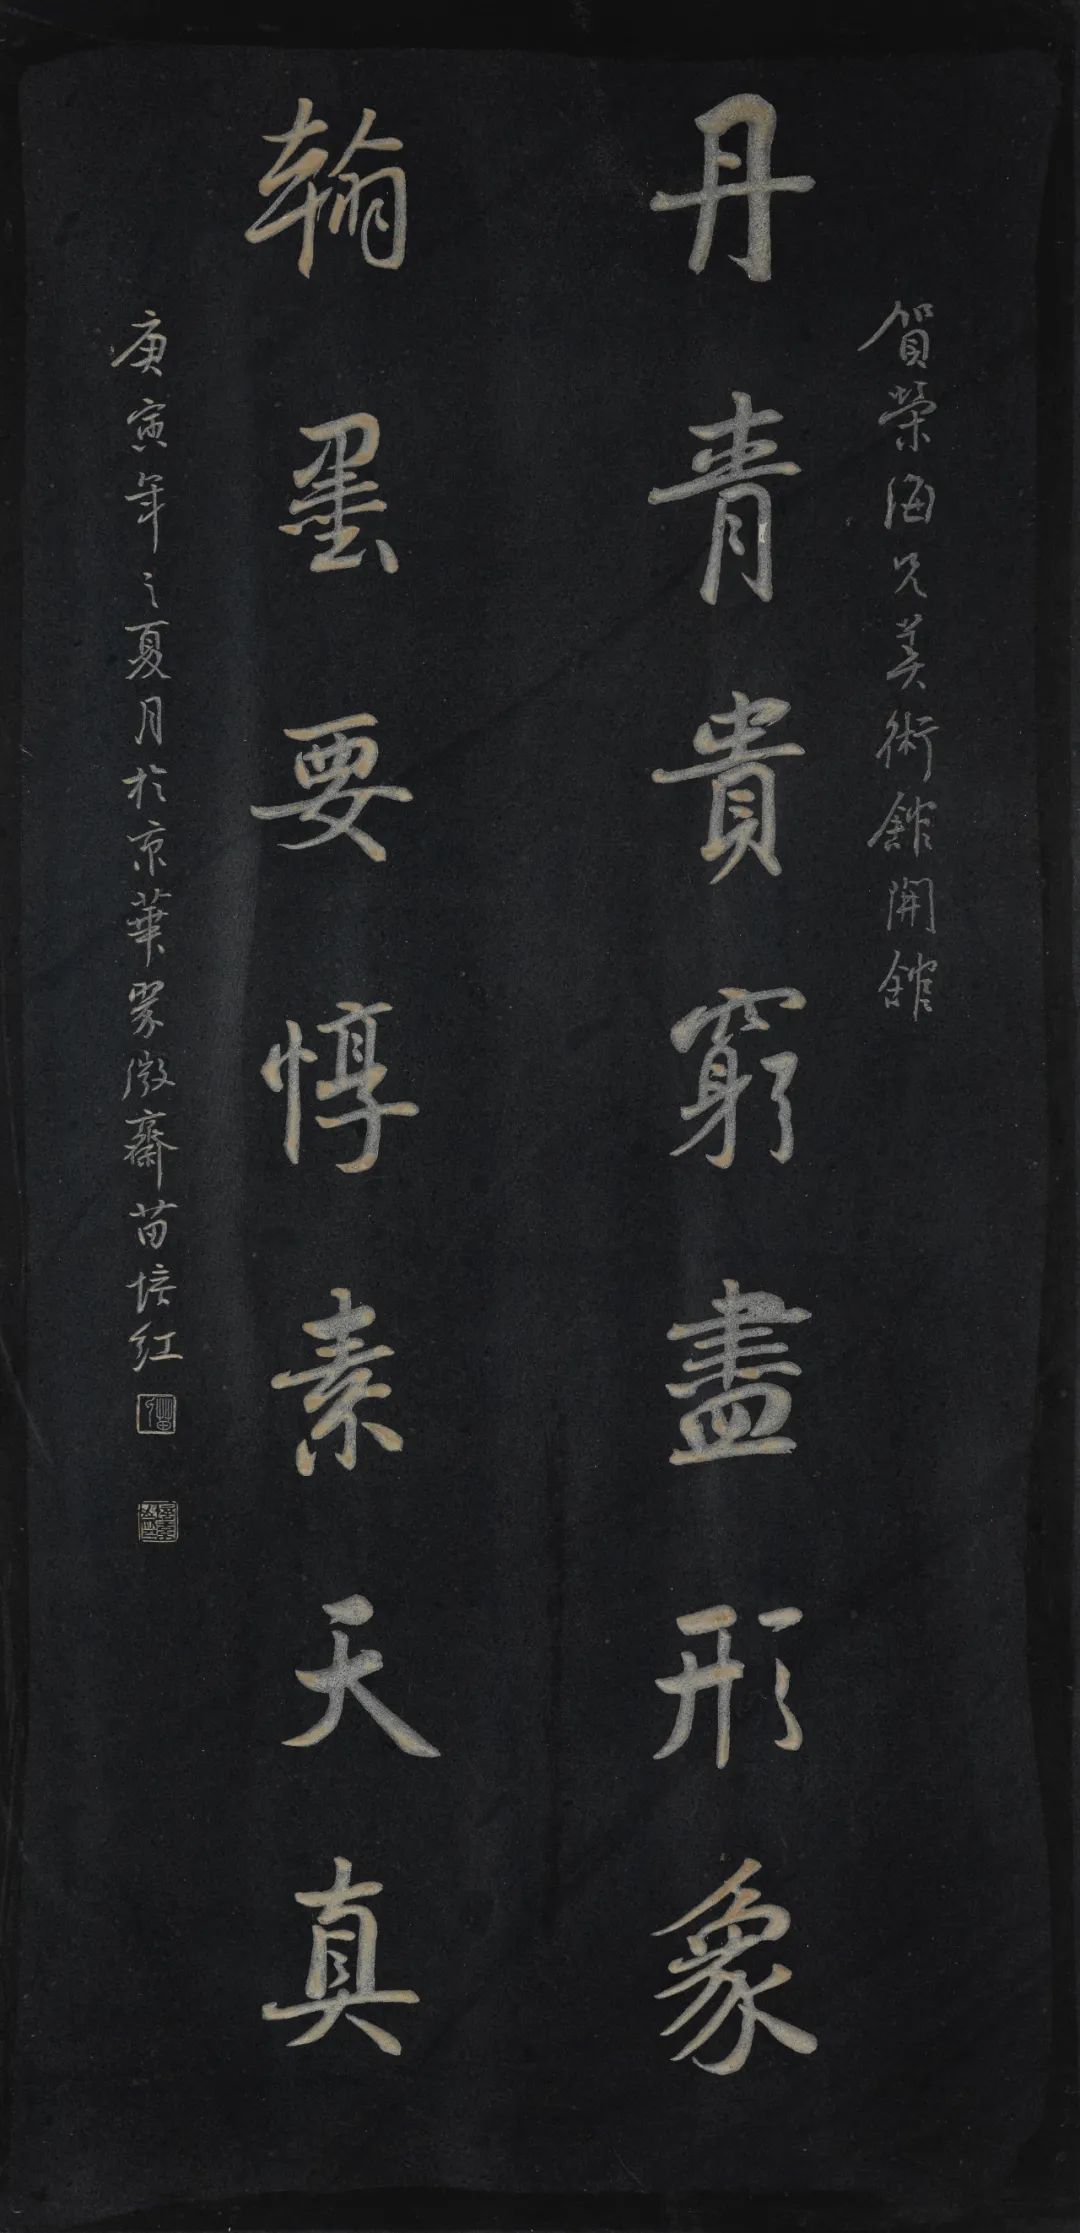 賀榮海兄美術館開館
丹青貴窮盡形象
翰墨要惇素天真
庚寅年之夏月於京華蒙微齋苗培红